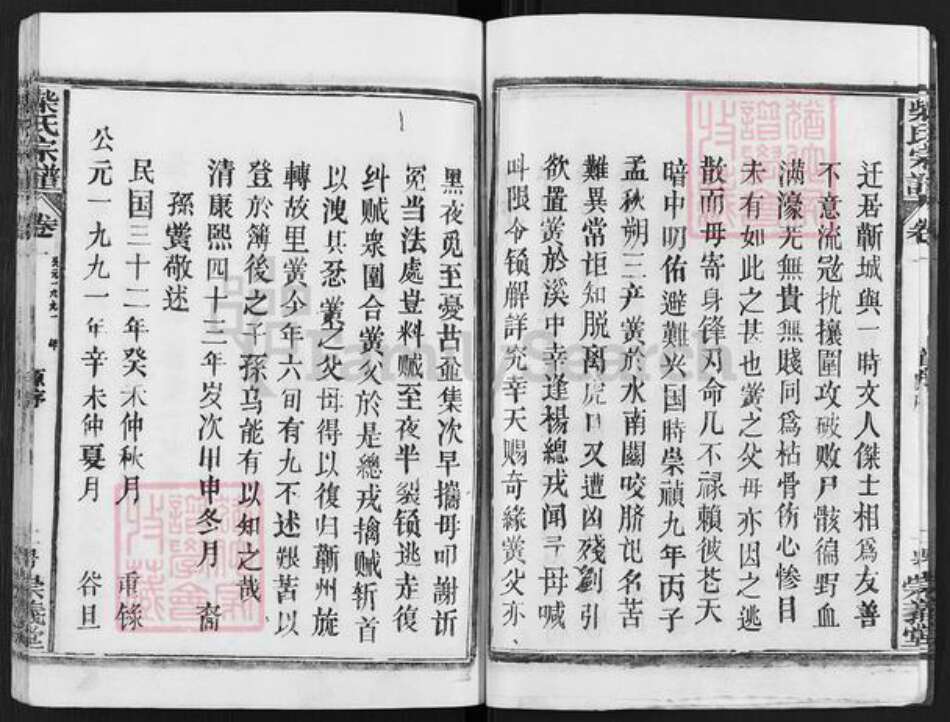 柴氏宗譜
卷一
迁居蘄城與一時文人傑士相爲友善
不意流冦扰攘圍攻破败尸骸徧野血
满濠无無貴無賤同爲枯骨伤心慘目
未有如此之甚也黌之父毋亦因之逃
散而毋寄身锋刃命几不禄賴彼苍天
暗中明佑避難兴国時崇禎九年丙子
孟秋朔三产黌於水南關咬脐记名苦
難異常讵知脱离虎口又遭凶殘劉引
欲置黌於溪中幸逢楊總戎闻子母喊
叫限令锁解詳究幸天赐奇緣黌父亦
黑夜覓至憂苦仝集次早攜毋叩謝诉
冤当法處豈料贼至夜半裂锁逃走復
纠贼衆圍合黌父於是總戎擒贼斩首
以洩其忿黌之父母得以復归蘄州旋
轉故里黌今年六旬有九不述艱苦以
登於簿後之子孫乌能有以知之哉
清康熙四十三年岁次甲申冬月 裔
孫黌敬述
民国三十二年癸未仲秋月 重錄
公元一九九一年辛未仲夏月 谷旦
柴氏宗譜
卷一
公元一九九一年
崇義堂